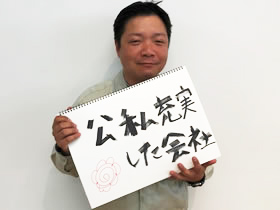 公私充実
した会社